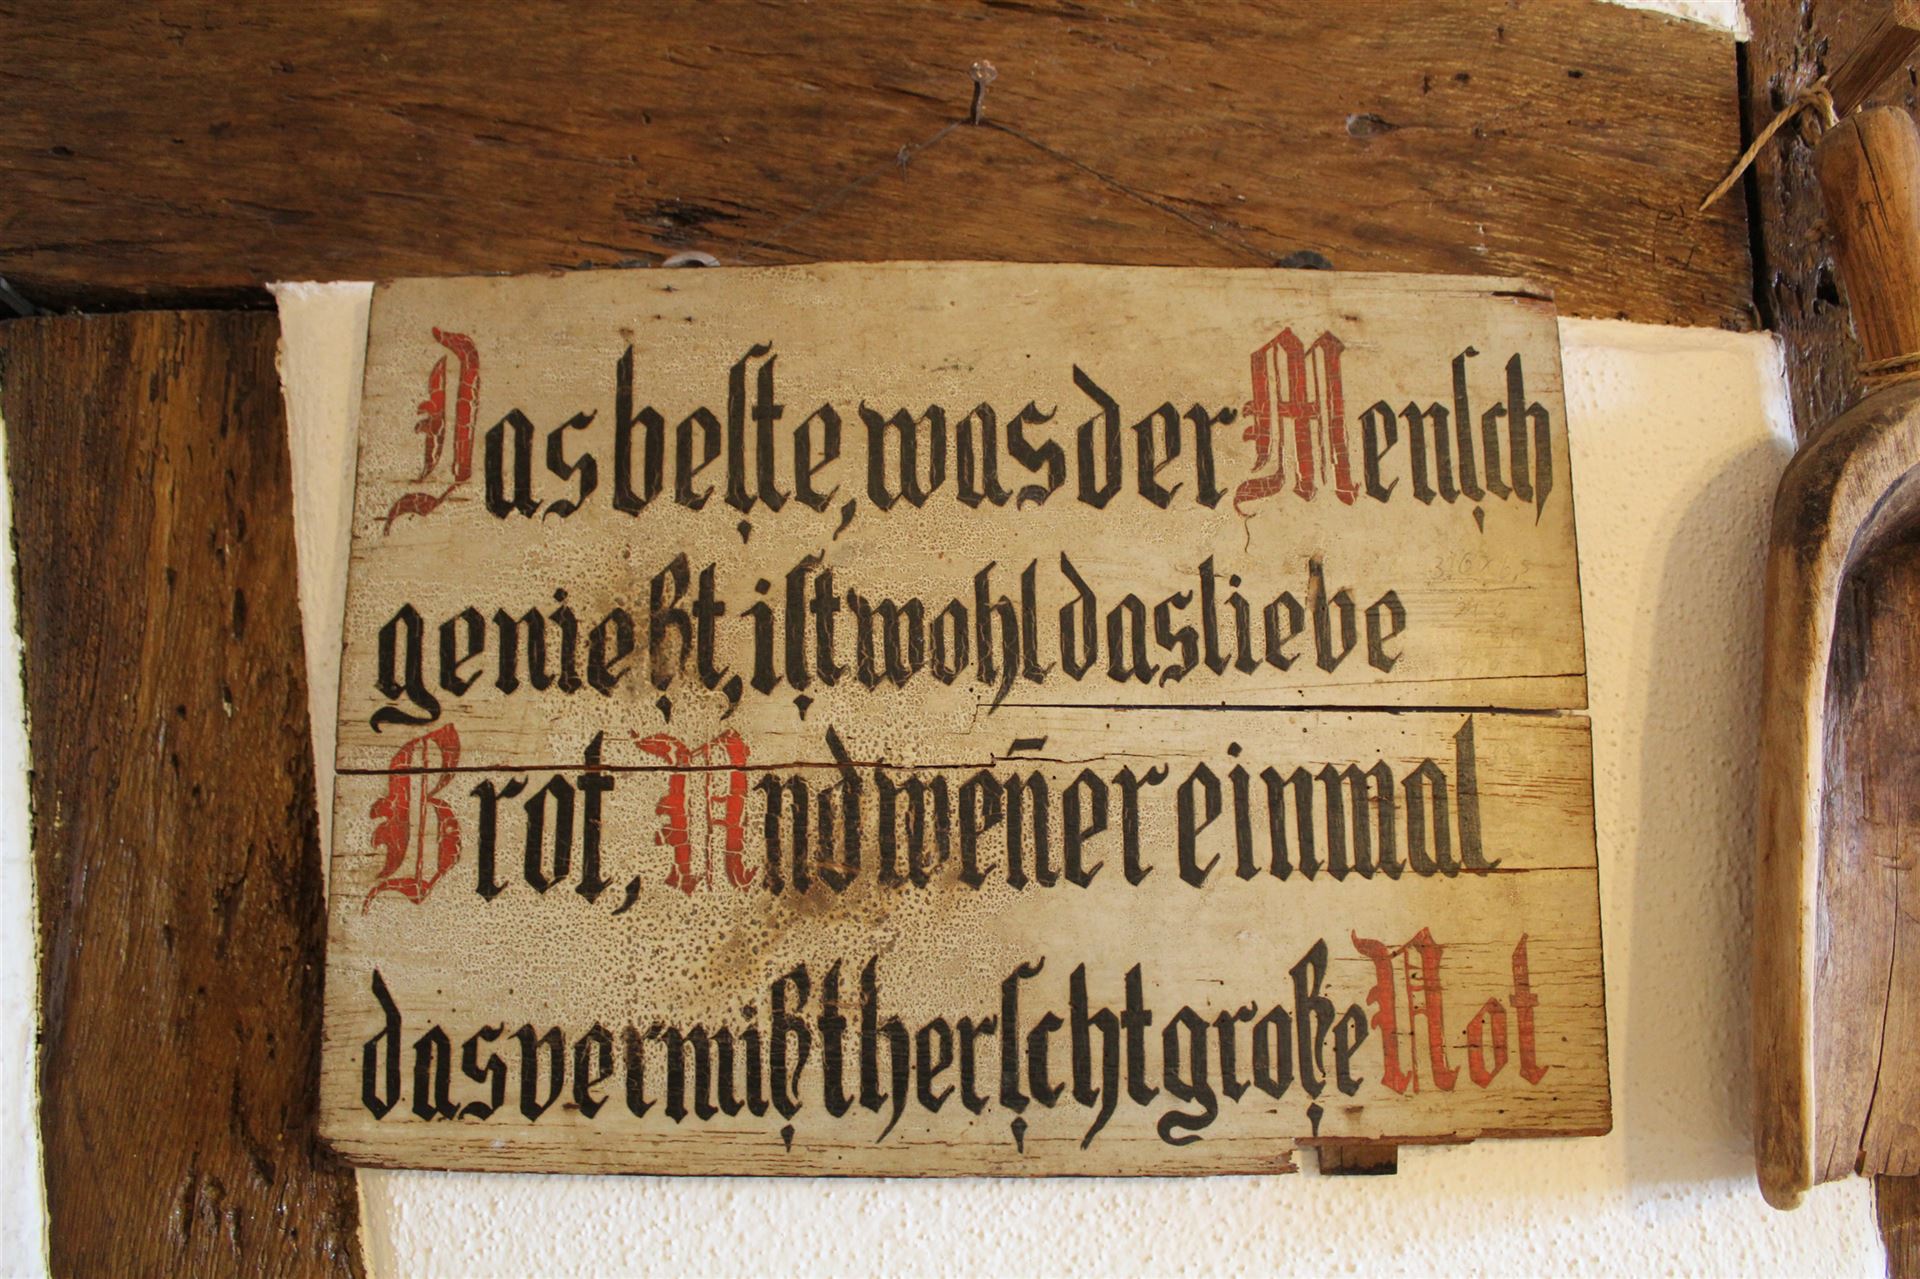 Das beste, was der Mensch
genießt, ist wohl das liebe
Brot, Und wen̄ er einmal
das vermißt herscht große Not